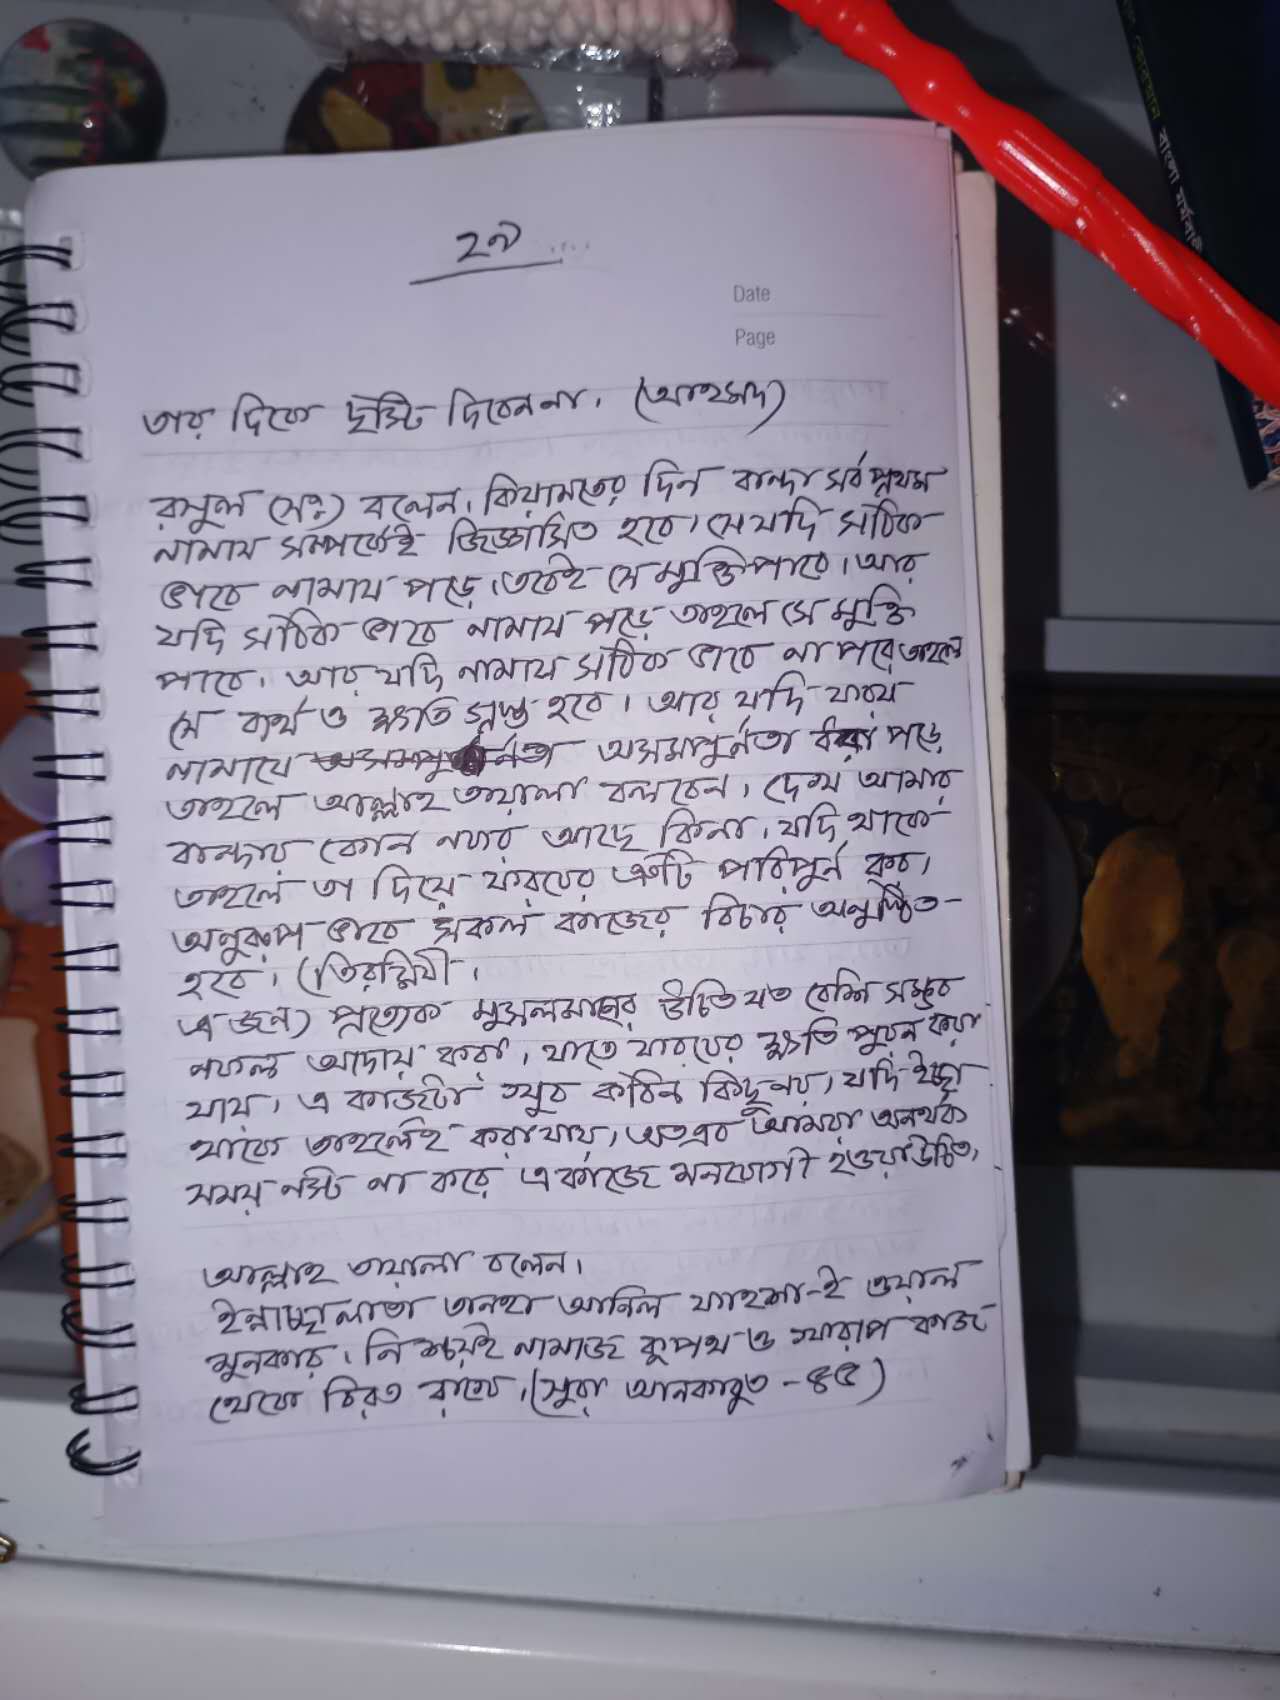 ২৯
Date
Page
তার দিকে দৃস্টি দিবেননা। (আহমদ)
রসুল (সঃ) বলেন। কিয়ামতের দিন বান্দা সর্বপ্রথম
নামায সম্পর্কেই জিজ্ঞাসিত হবে। সে যদি সঠিক
ভাবে নামায পড়ে, তবেই সে মুক্তি পাবে। আর
যদি সঠিক ভাবে নামায পড়ে তাহলে সে মুক্তি
পাবে। আর যদি নামায সঠিক ভাবে না পরে তাহলে
সে ব্যর্থ ও ক্ষতি গ্রস্ত হবে। আর যদি ফরয
নামাযে অসমপুর্নতা পড়ে
তাহলে আল্লাহ তায়ালা বলবেন। দেখ আমার
বান্দার কোন নফল আছে কিনা। যদি থাকে
তাহলে তা দিয়ে ফরযের ত্রুটি পরিপুর্ন কর।
অনুরূপ ভাবে সকল কাজের বিচার অনুষ্ঠিত
হবে। (তিরমিযী।
এ জন্য) প্রত্যেক মুসলমানের উচিত যত বেশি সম্ভব
নফল আদায় করা। যাতে ফরযের ক্ষতি পুরন করা
যায়। এ কাজটা খুব কঠিন কিছু নয়। যদি ইচ্ছা
থাকে তাহলেই করা যায়। অতএব আমরা অনর্থক
সময় নস্ট না করে এ কাজে মনযোগী হওয়া উচিত।
আল্লাহ তায়ালা বলেন।
ইন্নাচ্ছালাতা তানহা আনিল ফাহশা-ই ওয়াল
মুনকার। নিশ্চয়ই নামাজ কুপথ ও খারাপ কাজ
থেকে বিরত রাখে। (সুরা আনকাবুত - ৪৫)
বাংলা